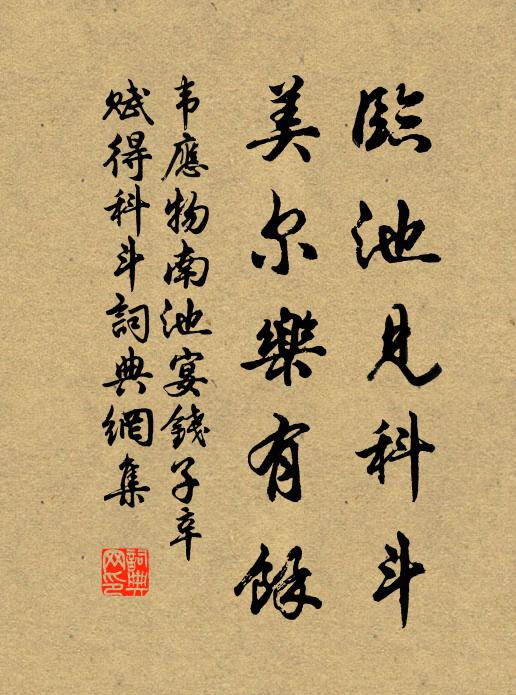 臨池見科斗
美尔樂有餘
韦應物南池宴錢子辛
赋得科斗詞典網集
詞典网印